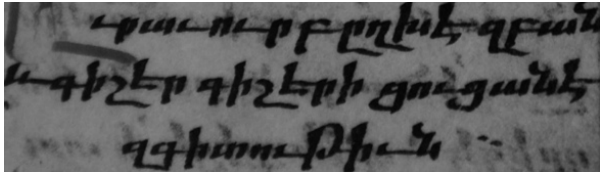 րաւուր բըղխէ զբան
և գիշեր գիշերի ցուցանէ
զգիտութիւն ։